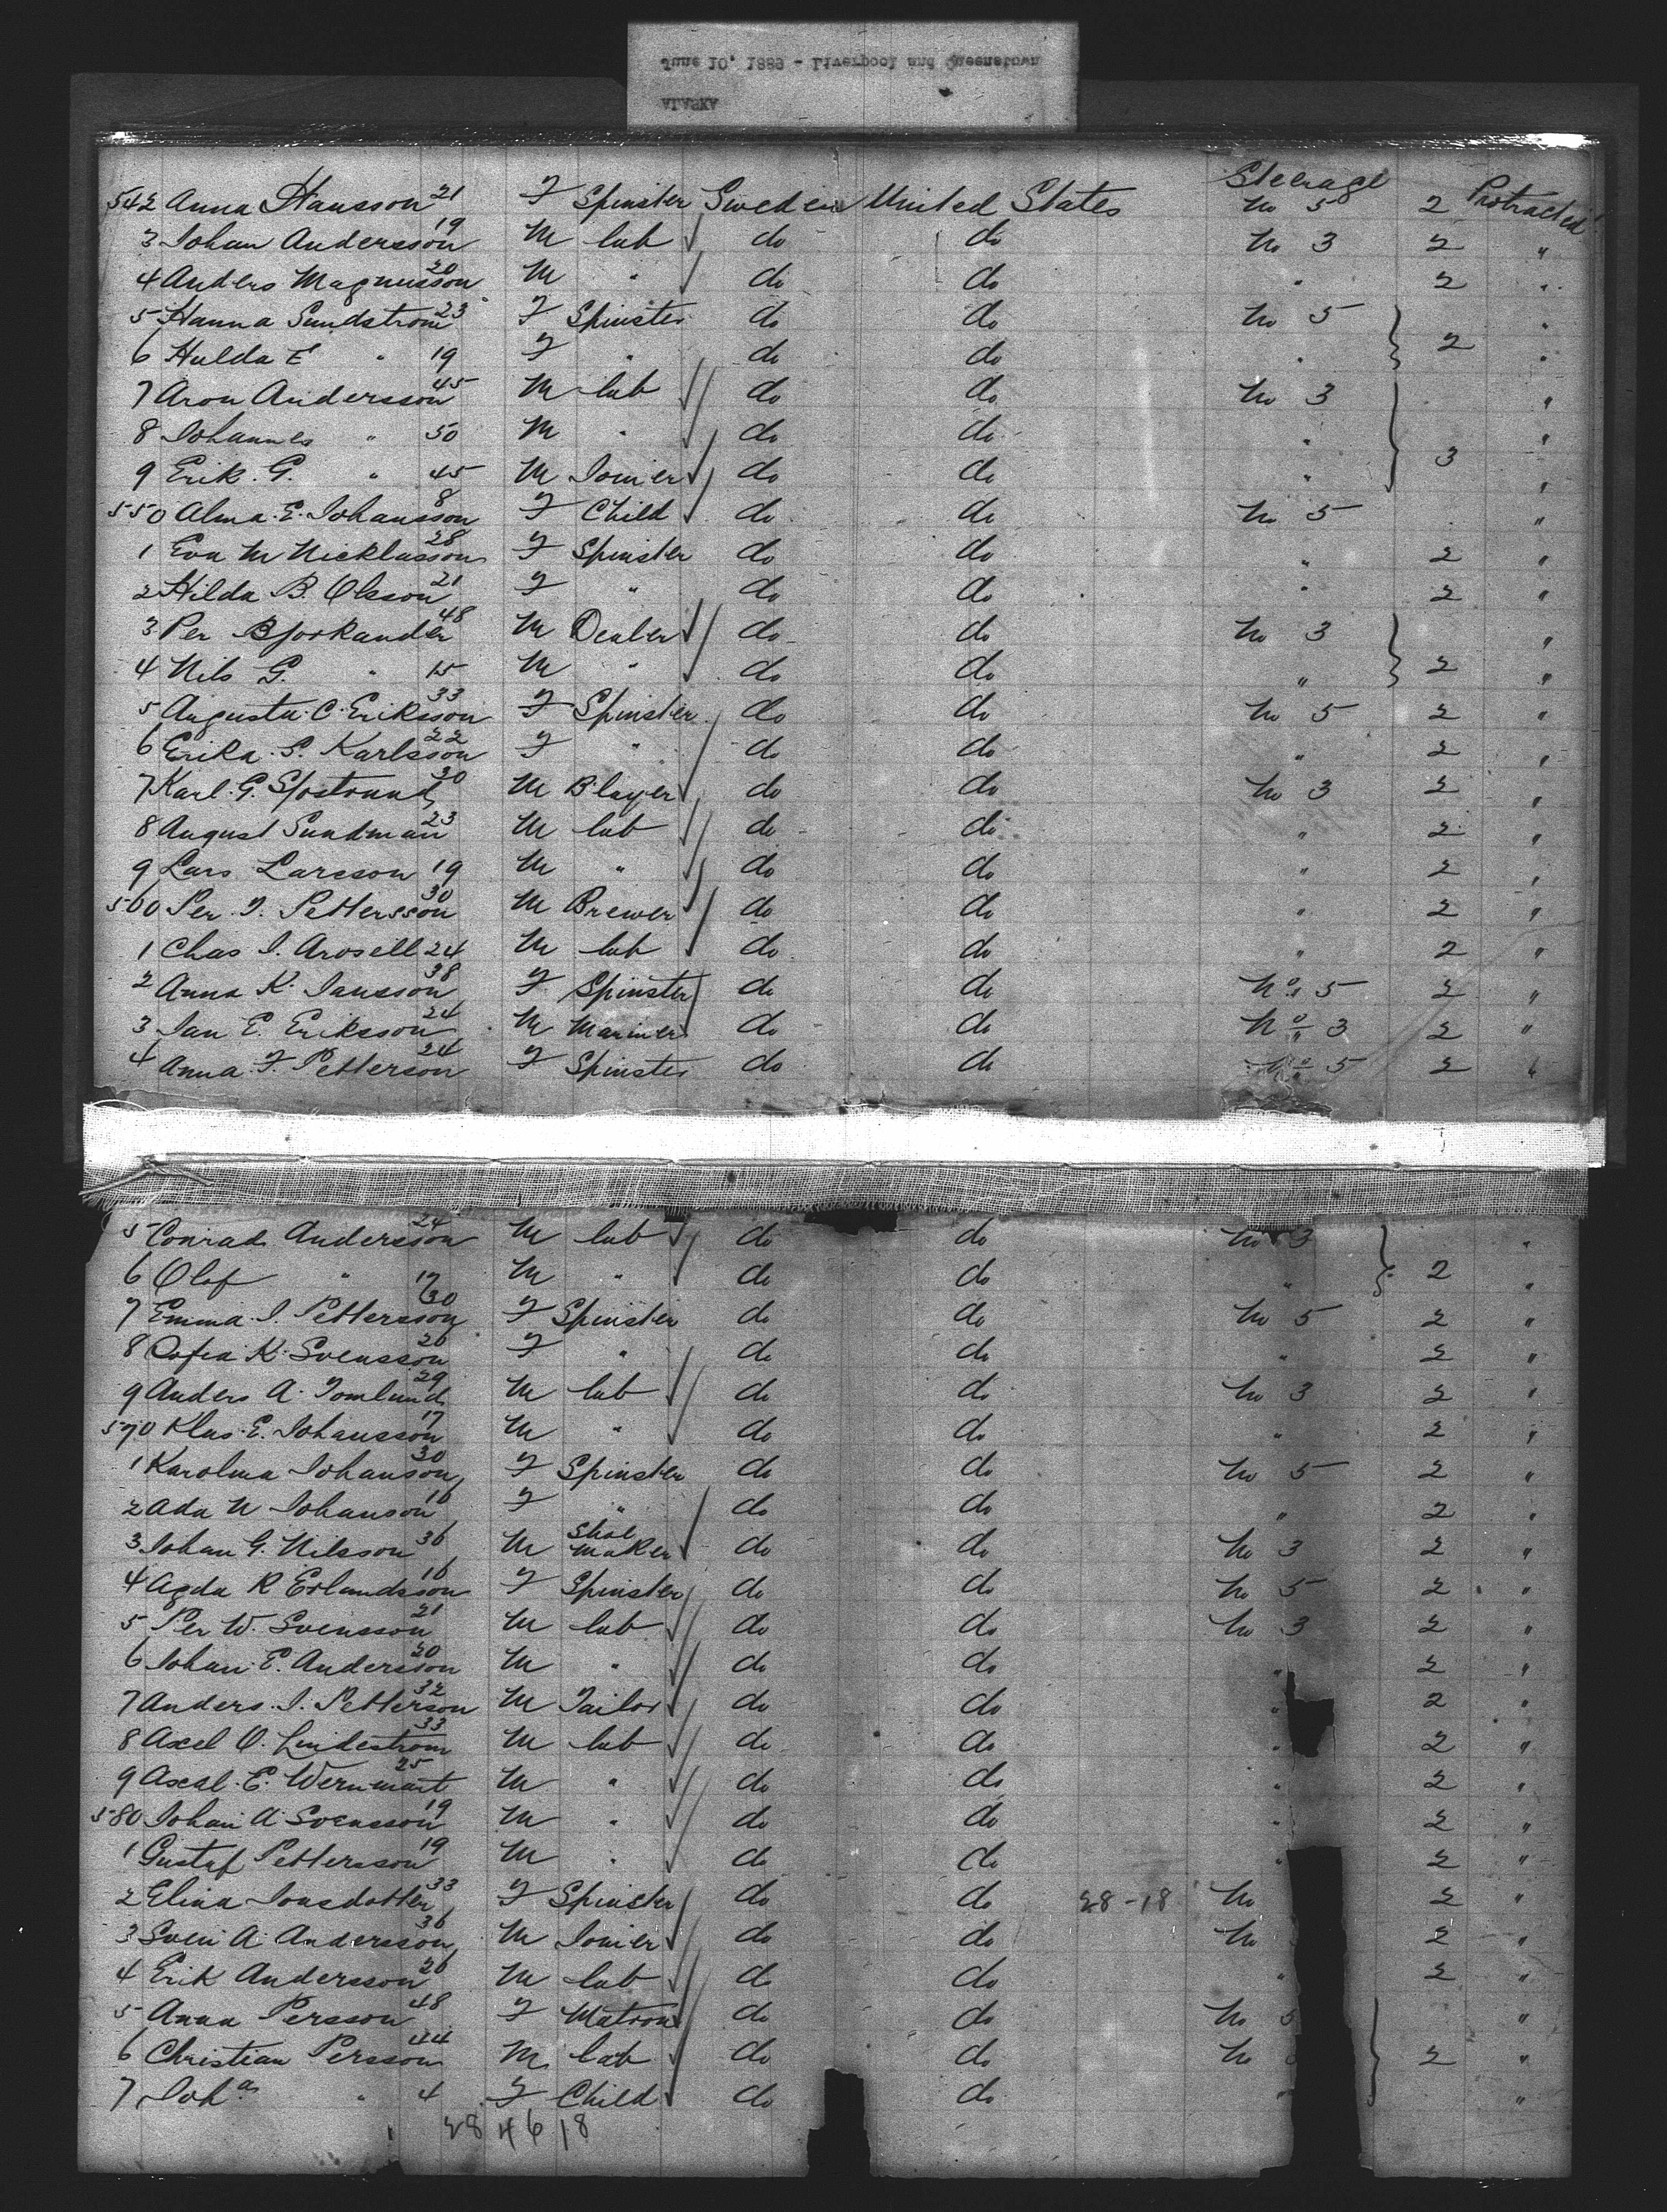 June 10, 1889 - Liverpool and Queenstown
ALASKA
Steerage
542 Anna Hansson 21 F Spinster Sweden United States No 5 2 Protracted
3 Johan Andersson 19 M lab do do No 3 2 "
4 Anders Magnusson 20 M " do do " 2 "
5 Hanna Sundstrom 23 F Spinster do do No 5 "
6 Hulda E " 19 F " do do " 2 "
7 Aron Andersson 45 M lab do do No 3 "
8 Johannes " 50 M " do do " "
9 Erik G. " 45 M Joiner do do " 3 "
550 Alma E. Johansson 8 F Child do do No 5 "
1 Eva M Nicklasson 28 F Spinster do do " 2 "
2 Hilda B. Olsson 21 F " do do " 2 "
3 Per Bjorkander 48 M Dealer do do No 3 "
4 Nils G. " 15 M " do do " 2 "
5 Augusta C. Eriksson 33 F Spinster do do No 5 2 "
6 Erika S. Karlsson 22 F " do do " 2 "
7 Karl G. Sjostrund 30 M B.layer do do No 3 2 "
8 August Sundman 23 M lab do do " 2 "
9 Lars Larsson 19 M " do do " 2 "
560 Per J. Pettersson 30 M Brewer do do " 2 "
1 Chas J. Arosell 24 M lab do do " 2 "
2 Anna K. Jansson 38 F Spinster do do No 5 2 "
3 Jan E. Eriksson 24 M Mariner do do No 3 2 "
4 Anna F. Petterson 24 F Spinster do do No 5 2 "
5 Conrad Andersson 24 M lab do do No 3 "
6 Olof " 17 M " do do " 2 "
7 Emma J. Pettersson 30 F Spinster do do No 5 2 "
8 Sofia K. Svensson 26 F " do do " 2 "
9 Anders A. Tomlund 29 M lab do do No 3 2 "
570 Klas E. Johansson 17 M " do do " 2 "
1 Karolina Johanson 30 F Spinster do do No 5 2 "
2 Ada N Johanson 16 F " do do " 2 "
3 Johan G. Nilsson 36 M Shoe maker do do No 3 2 "
4 Agda R Erlandsson 16 F Spinster do do No 5 2 "
5 Per W. Svensson 21 M lab do do No 3 2 "
6 Johan E. Andersson 20 M " do do " 2 "
7 Anders J. Petterson 32 M Tailor do do " 2 "
8 Axel O. Lindestrom 33 M lab do do " 2 "
9 Axel E. 25 M " do do " 2 "
580 Johan A Svensson 19 M " do do " 2 "
1 Gustaf Pettersson 19 M " do do " 2 "
2 Elina Jonsdotter 33 F Spinster do do 28-18 No 2 "
3 Sven A. Andersson 36 M Joiner do do No 2 "
4 Erik Andersson 26 M lab do do " 2 "
5 Anna Persson 48 F Matron do do No 5 "
6 Christian Persson 44 M lab do do No 2 "
7 Joh a " 4 F Child do do " "
28 46 18